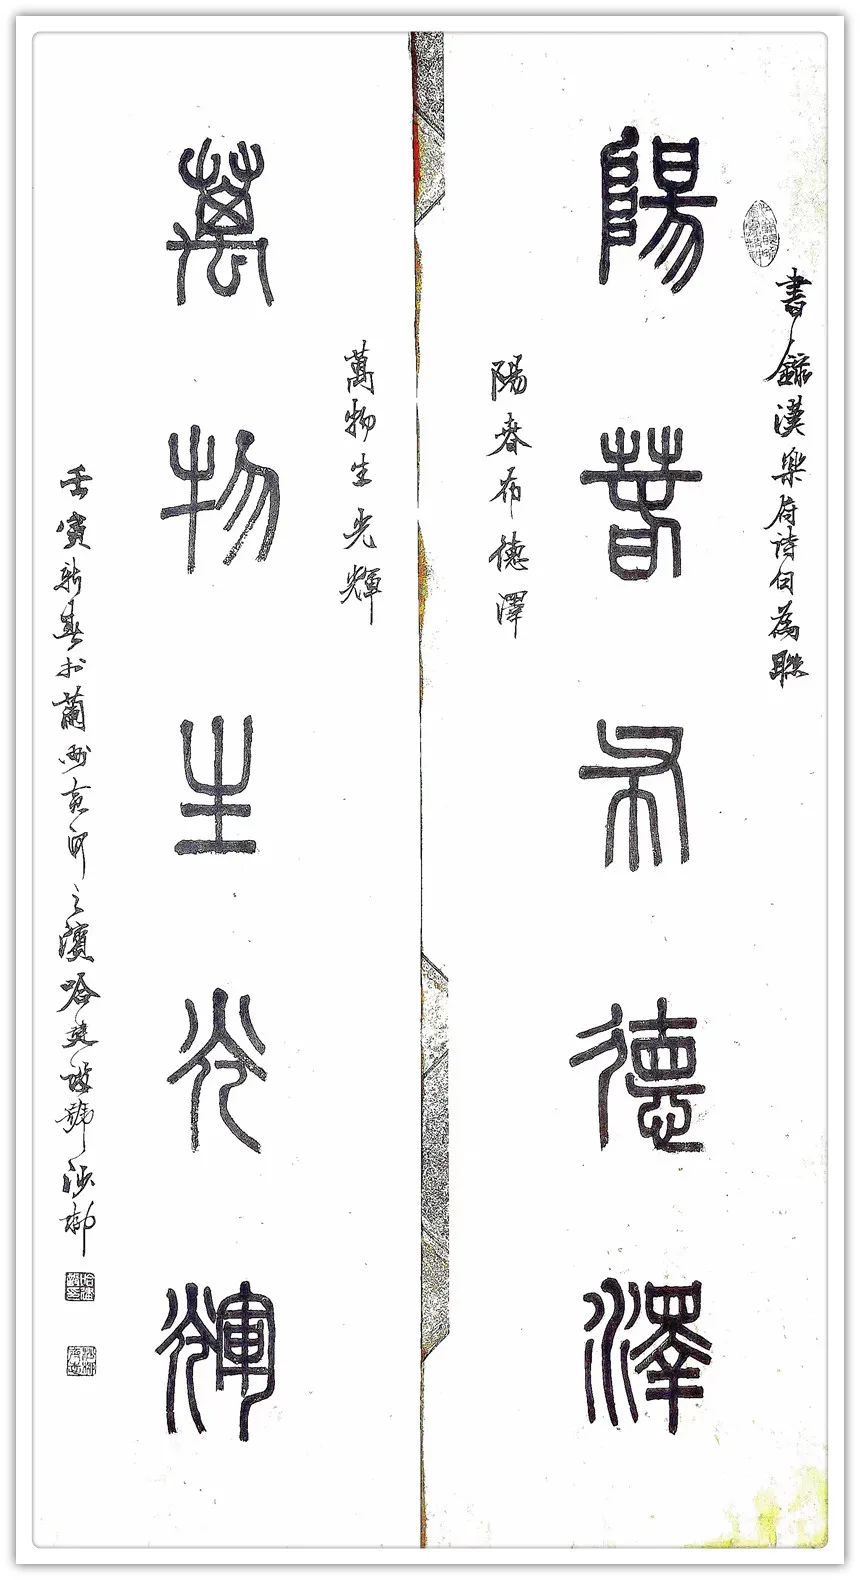 書錄漢樂府詩句為聯
陽春布德澤
陽春布德澤
萬物生光輝
萬物生光輝
壬寅新春於蘭州黃河之濱哈建設號沙柳